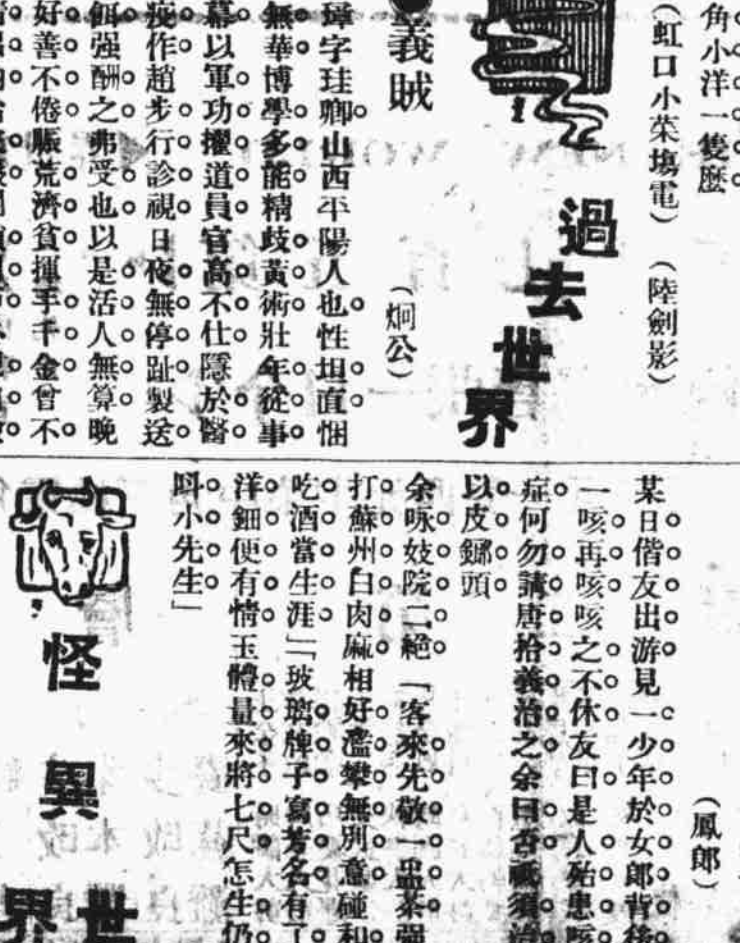 角小洋一隻麼
（虹口小菜塲電）（陸劍影）
過去世界
義賊
（炯公）
璋字珪卿山西平陽人也性坦直悃
無華博學多能精歧黃術壯年從事
幕以軍功擢道員官高不仕隱於醫
疫作趙步行診視日夜無停趾製送
餌强酬之弗受也以是活人無算晚
好善不倦賑荒濟貧揮手千金曾不
（鳳郎）
某日偕友出游見一少年於女郎背後
一咳再咳咳之不休友曰是人殆患咳
症何勿請唐拾義治之余曰否祗須治
以皮鎯頭
余咏妓院二絕「客來先敬一盅茶强
打蘇州白肉麻相好濫攀無別意碰和
吃酒當生涯」「玻璃牌子寫芳名有了
洋鈿便有情玉體量來將七尺怎生仍
呌小先生」
怪異世界